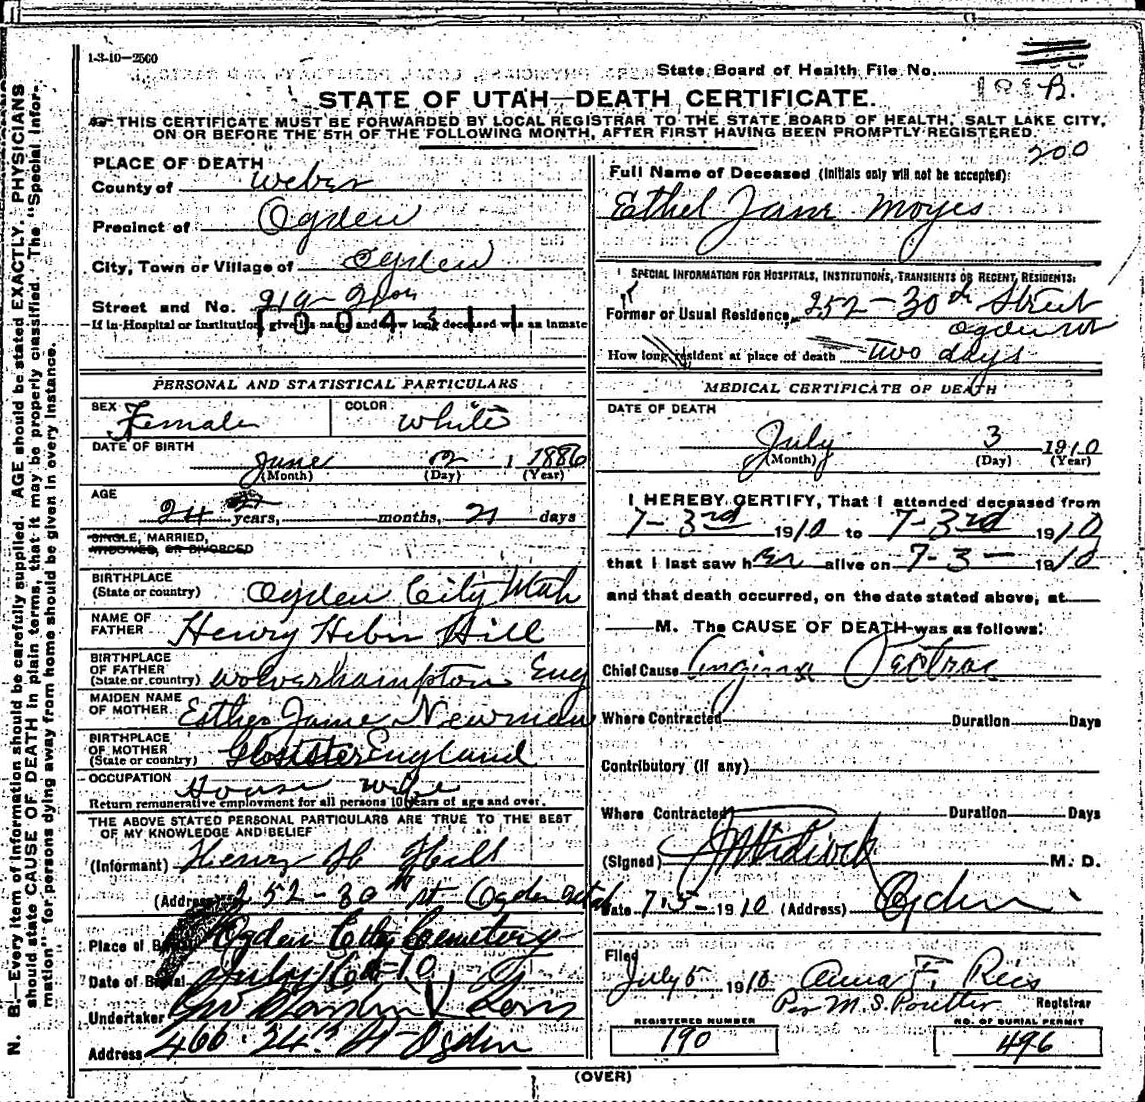 1-3-10—2500
State Board of Health File No.
STATE OF UTAH—DEATH CERTIFICATE.
THIS CERTIFICATE MUST BE FORWARDED BY LOCAL REGISTRAR TO THE STATE BOARD OF HEALTH, SALT LAKE CITY,
ON OR BEFORE THE 5TH OF THE FOLLOWING MONTH, AFTER FIRST HAVING BEEN PROMPTLY REGISTERED.
200
N. B.—Every item of information should be carefully supplied. AGE should be stated EXACTLY. PHYSICIANS
should state CAUSE OF DEATH in plain terms, that it may be properly classified. The "Special Infor-
mation" for persons dying away from home should be given in every instance.
PLACE OF DEATH
County of Weber
Precinct of Ogden
City, Town or Village of Ogden
Street and No.
If in Hospital or Institution, give its name and how long deceased was an inmate
PERSONAL AND STATISTICAL PARTICULARS
SEX Female COLOR White
DATE OF BIRTH
June 2 1886
(Month) (Day) (Year)
AGE
24 years, months, 21 days
SINGLE, MARRIED,
WIDOWED, OR DIVORCED
BIRTHPLACE
(State or country) Ogden City Utah
NAME OF
FATHER Henry Heber Hill
BIRTHPLACE
OF FATHER
(State or country) Wolverhampton Eng
MAIDEN NAME
OF MOTHER Esther Jane Newman
BIRTHPLACE
OF MOTHER
(State or country) Glosister England
OCCUPATION House wife
Return remunerative employment for all persons 10 years of age and over.
THE ABOVE STATED PERSONAL PARTICULARS ARE TRUE TO THE BEST
OF MY KNOWLEDGE AND BELIEF
(Informant) Henry H Hill
(Address) 252-30th St Ogden Utah
Place of Burial Ogden City Cemetery
Date of Burial July 6th-10
Undertaker
Address 466 24th St Ogden
Full Name of Deceased (Initials only will not be accepted):
Ethel Jane Moyes
SPECIAL INFORMATION FOR HOSPITALS, INSTITUTIONS, TRANSIENTS OR RECENT RESIDENTS:
Former or Usual Residence, 252-30th Street
Ogden Ut
How long resident at place of death Two days
MEDICAL CERTIFICATE OF DEATH
DATE OF DEATH
July 3 1910
(Month) (Day) (Year)
I HEREBY CERTIFY, That I attended deceased from
7-3rd 1910 to 7-3rd 1910
that I last saw her alive on 7-3- 1910
and that death occurred, on the date stated above, at
M. The CAUSE OF DEATH was as follows:
Chief Cause Angina Pectoras
Where Contracted Duration Days
Contributory (if any)
Where Contracted Duration Days
(Signed) M. D.
Date 7-5-1910 (Address) Ogden
Filed
July 5 1910 Anna F. Ries
Per M. S. Poulter Registrar
REGISTERED NUMBER
190
NO. OF BURIAL PERMIT
496
(OVER)